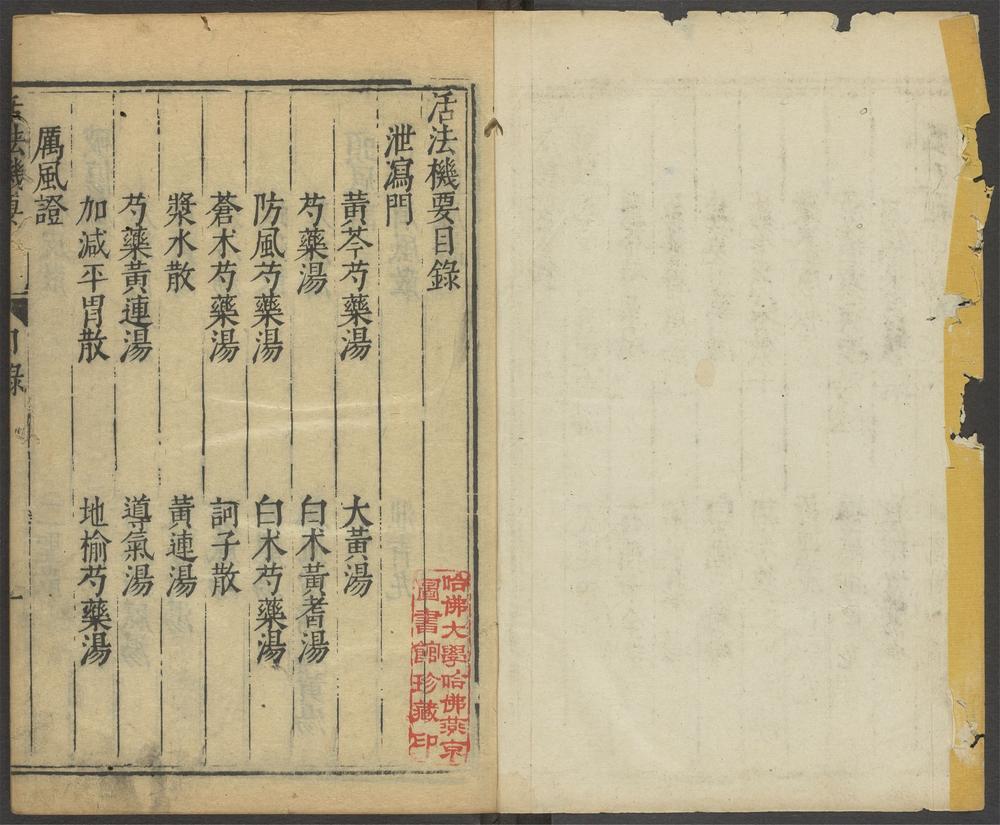 活法機要目錄
泄瀉門
黃芩芍藥湯 大黃湯
芍藥湯 白朮黃耆湯
防風芍藥湯 白朮芍藥湯
蒼朮芍藥湯 訶子散
漿水散 黃連湯
芍藥黃連湯 導氣湯
加減平胃散 地榆芍藥湯
厲風證
活法機要 目錄 一
哈佛大學哈佛燕京
圖書館珍藏印